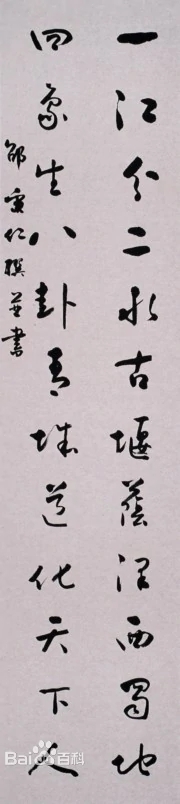 一江分二水古堰荫泽西蜀地
四象生八卦青城道化天下人
邹重仁撰并书
Bai百科